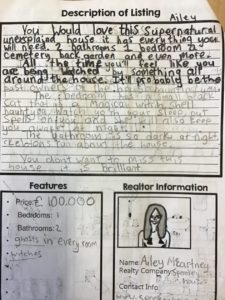 Description of Listing
Ailey
You would love this Supernatural
unexplained house it has everything you
will need. 2 bathrooms 1 bedroom
Cemetery back garden and even more.
All the time you'll feel like you
are being watched by something all
around the house. It'll probably be the
past owners of
the bedroom
Cat that is a Magical witch. She'll
haunt you, watch you in your sleep, put
Spells on you and will also keep
you awake at night.
The bathrooms so dark at night
skeletons run about the house.
You don't want to miss this
house it is brilliant
Features
Price: £100,000
Bedrooms: 1
Bathrooms: 2
ghosts in every room
witches
Realtor Information
Name: Ailey McCartney
Realty Company: Spooky
Contact Info